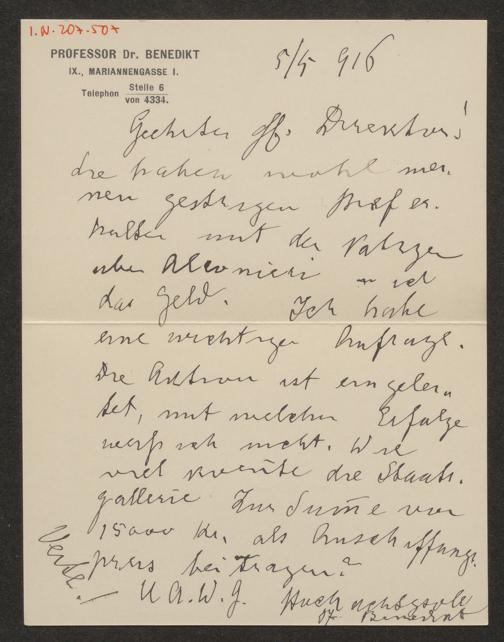 I.N. 207.507
PROFESSOR Dr. BENEDIKT
IX., MARIANNENGASSE 1.
Telephon Stelle 6
von 4334.
5/5 916
Geehrter H. Direktor!
Sie haben wohl mei-
nen gestrigen Brief er-
halten mit den
über ich
das Geld. Ich habe
eine wichtige Anfrage.
Die Aktion ist eingelei-
tet, mit welchem Erfolge
weiß ich nicht. Wie
viel könnte die Staats-
gallerie zur Sum̄e von
15000 Kr. als Anschaffungs-
preis beitragen?
U.A.W.G. Hochachtungsvoll
Dr. Benedikt